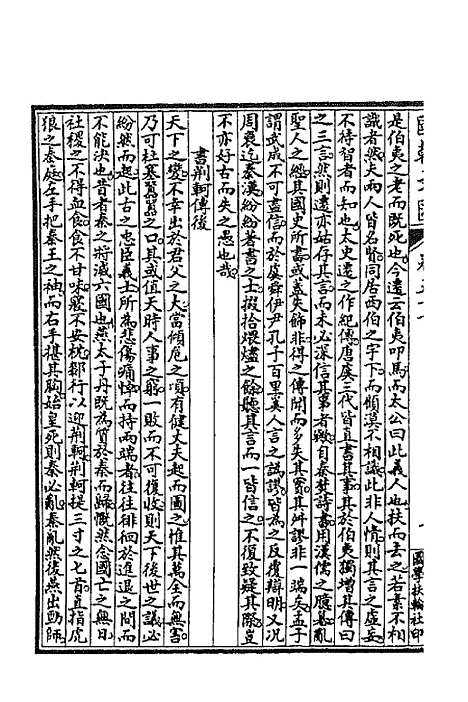 是伯夷之老而既死也今遠云伯夷叩馬而太公曰此義人也扶而去之若素不相
識者然夫兩人皆名賢同居西伯之宇下而顧漠不相識此非人情則其言之虛妄
不待智者而知也太史遠之作紀傳唐虞三代皆直書其事其於伯夷獨增其傳曰
之三言然則遠亦姑存其言而未必深信其事者歟自秦焚詩書用漢儒之臆說亂
聖人之經其國史所書或蓋失飾非得之傳聞而多失其實其舛謬非一端矣孟子
謂武成不可盡信而於虞舜伊尹孔子百里奚人言之譌謬皆為之反覆辯明又況
周衰迄秦漢紛紛著書之士掇拾煨燼之餘聽其言而一皆信之不復致疑其際豈
不亦好古而失之愚也哉
書荊軻傳後
天下之變不幸出於君父之大當傾危之頃有健丈夫起而圖之惟其萬全而無害
乃可杜塞鴽鴽之口其或值天時人事之窮一敗而不可復收則天下後世之議必
紛然而起此古之忠臣義士所為悲傷痛惜而持兩端者往往徘徊於進退之間而
不能決也昔者秦之將滅六國也燕太子丹既為質於秦而歸慨然念國亡之無日
社稷之不得血食食不甘味寢不安枕郤行以迎荊軻荊軻提三寸之匕首直指虎
狼之秦庭左手把秦王之袖而右手揕其胸始皇死則秦必亂秦亂然後燕出勁師
國學扶輪社印